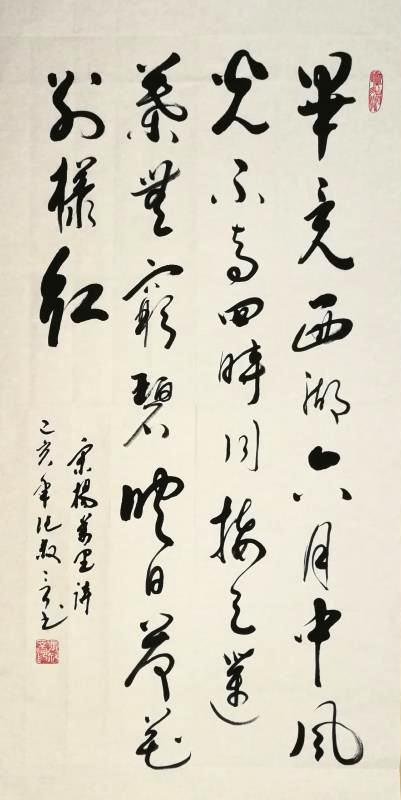 畢竟西湖六月中風
光不與四時同接天蓮
葉無窮碧映日荷花
別樣紅
宋楊萬里詩
己亥年